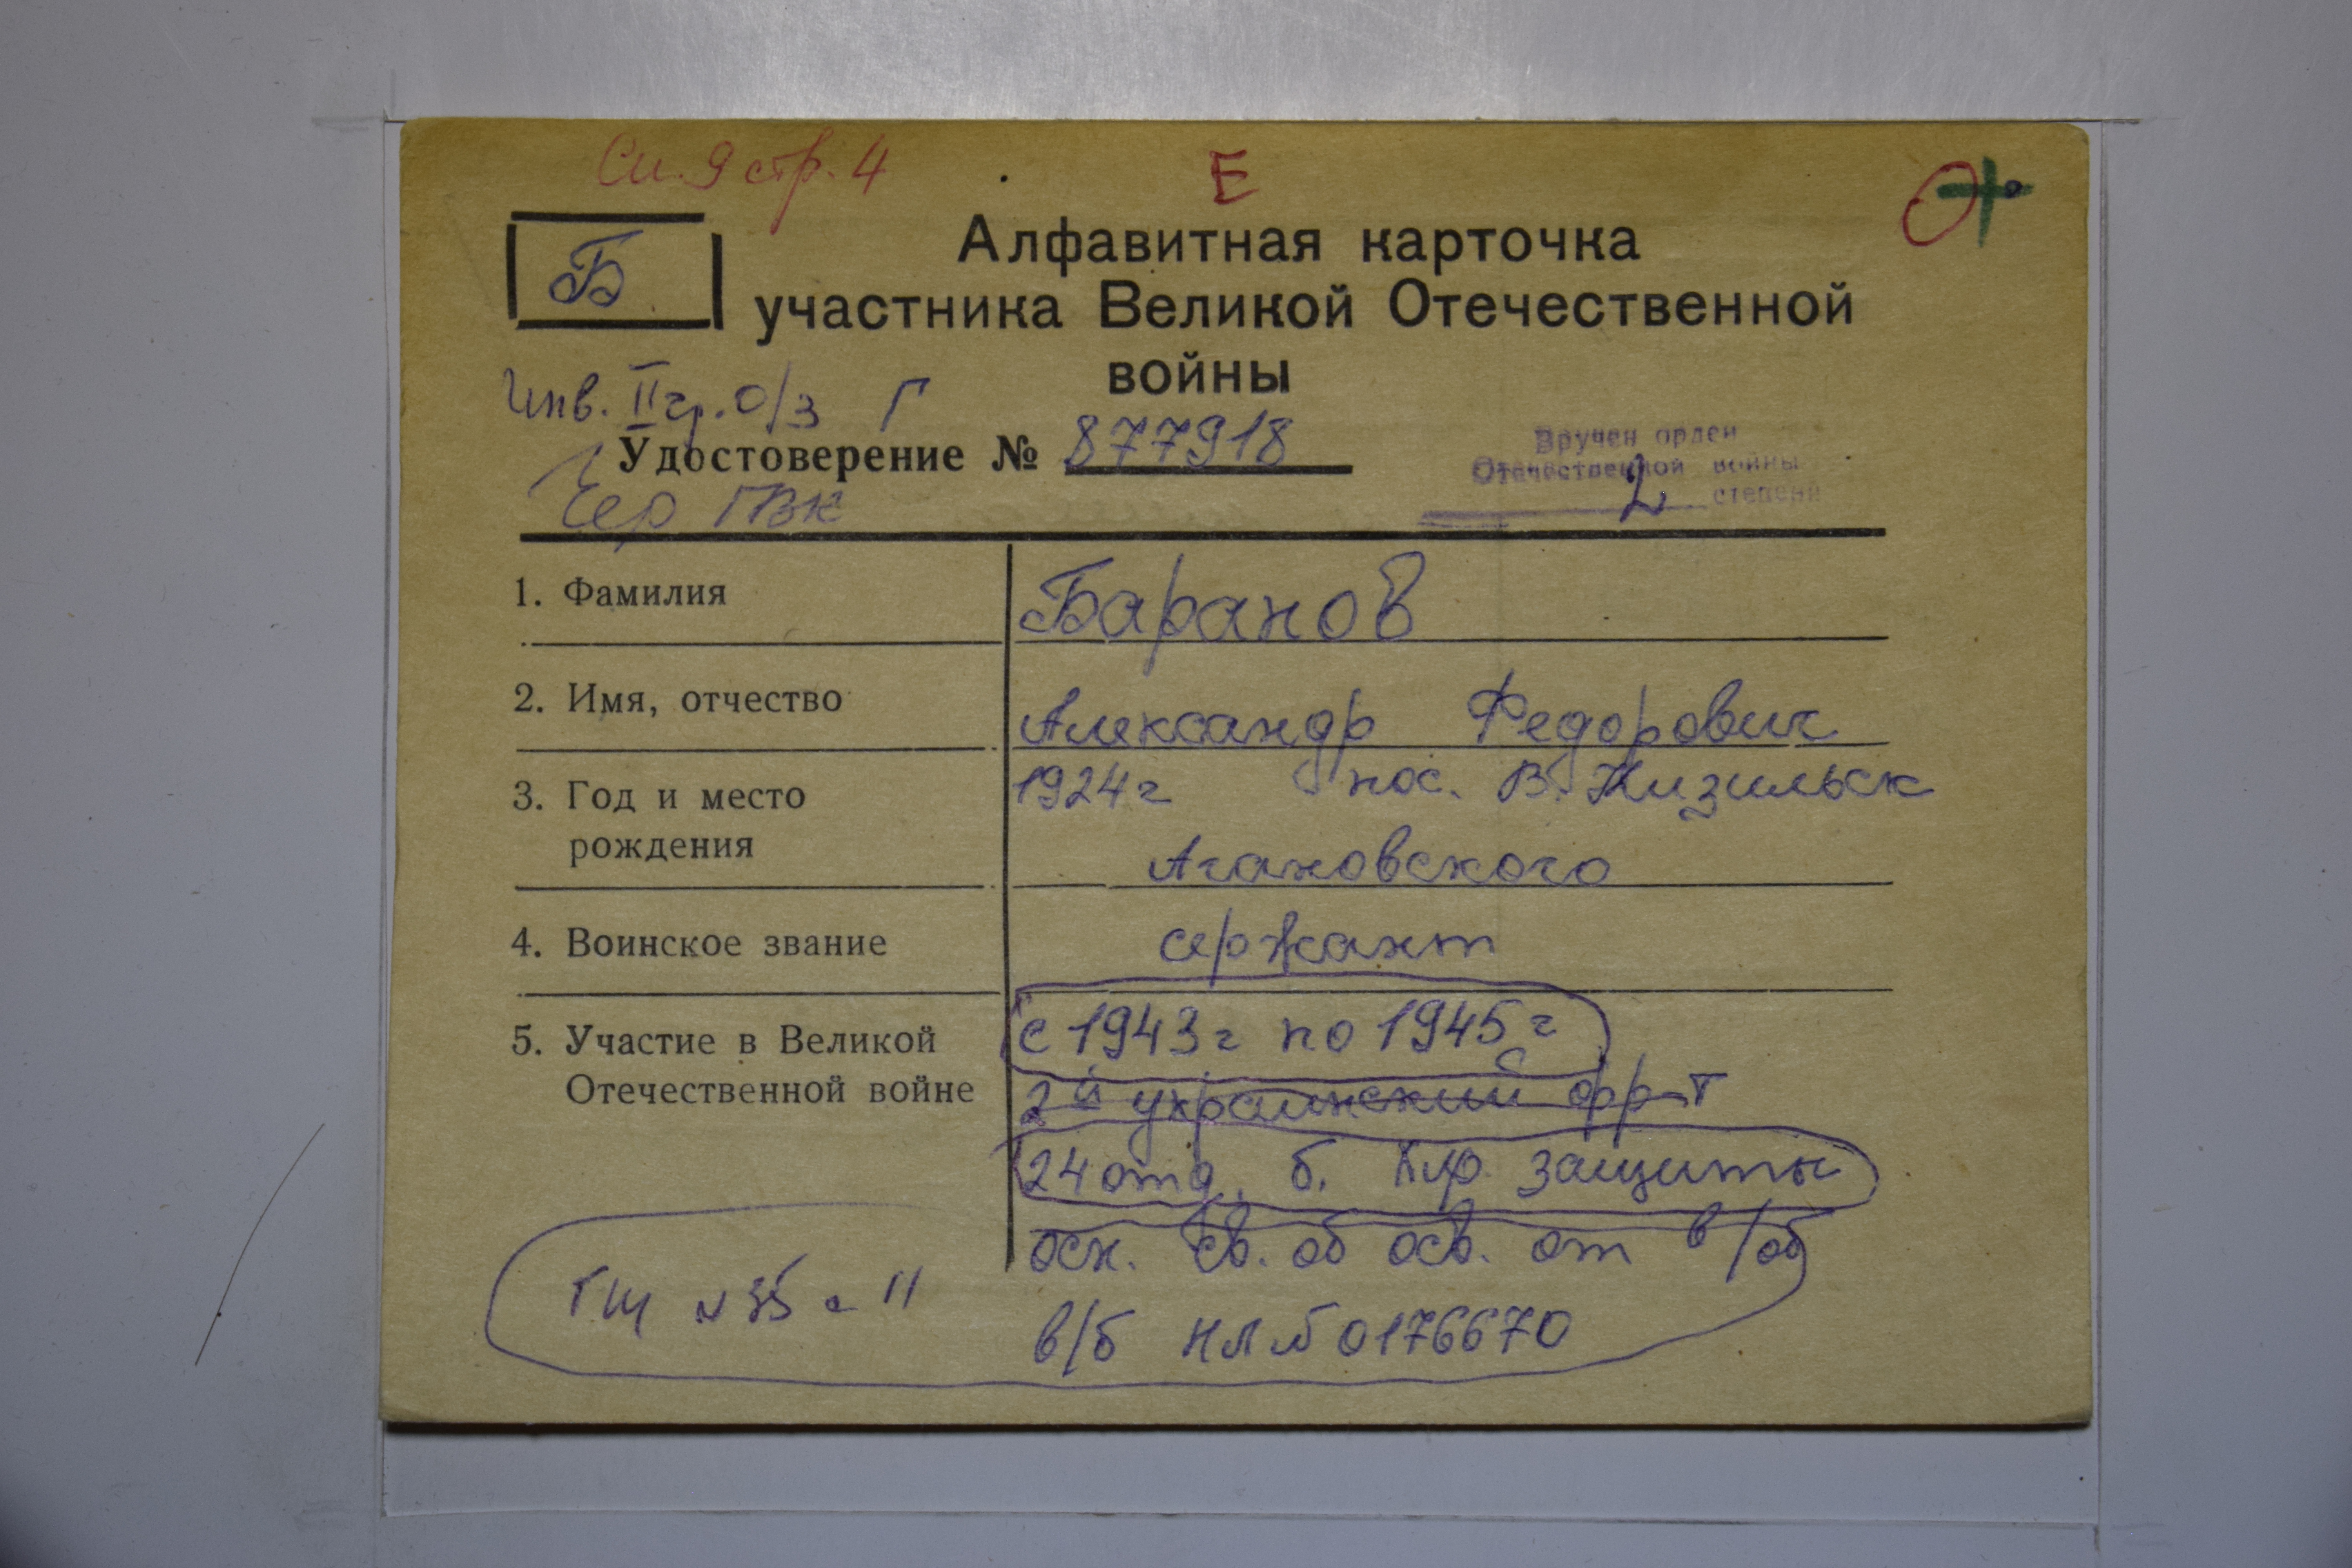 Сп. 9 стр. 4
Е
Б
Алфавитная карточка
участника Великой Отечественной
войны
Инв. II гр. О/З Г
Удостоверение № 877918
Вручен орден
Отечественной войны
2 степени
ГВК
1. Фамилия Баранов
2. Имя, отчество Александр Федорович
3. Год и место 1924 г пос. В. Кизильск
рождения Агаповского
4. Воинское звание сержант
5. Участие в Великой с 1943 г по 1945 г
Отечественной войне 2й украинский фр-т
24 отд. б. защиты
осн. св. об осв. от в/об
№ 35 11
в/б НЛ № 0176670